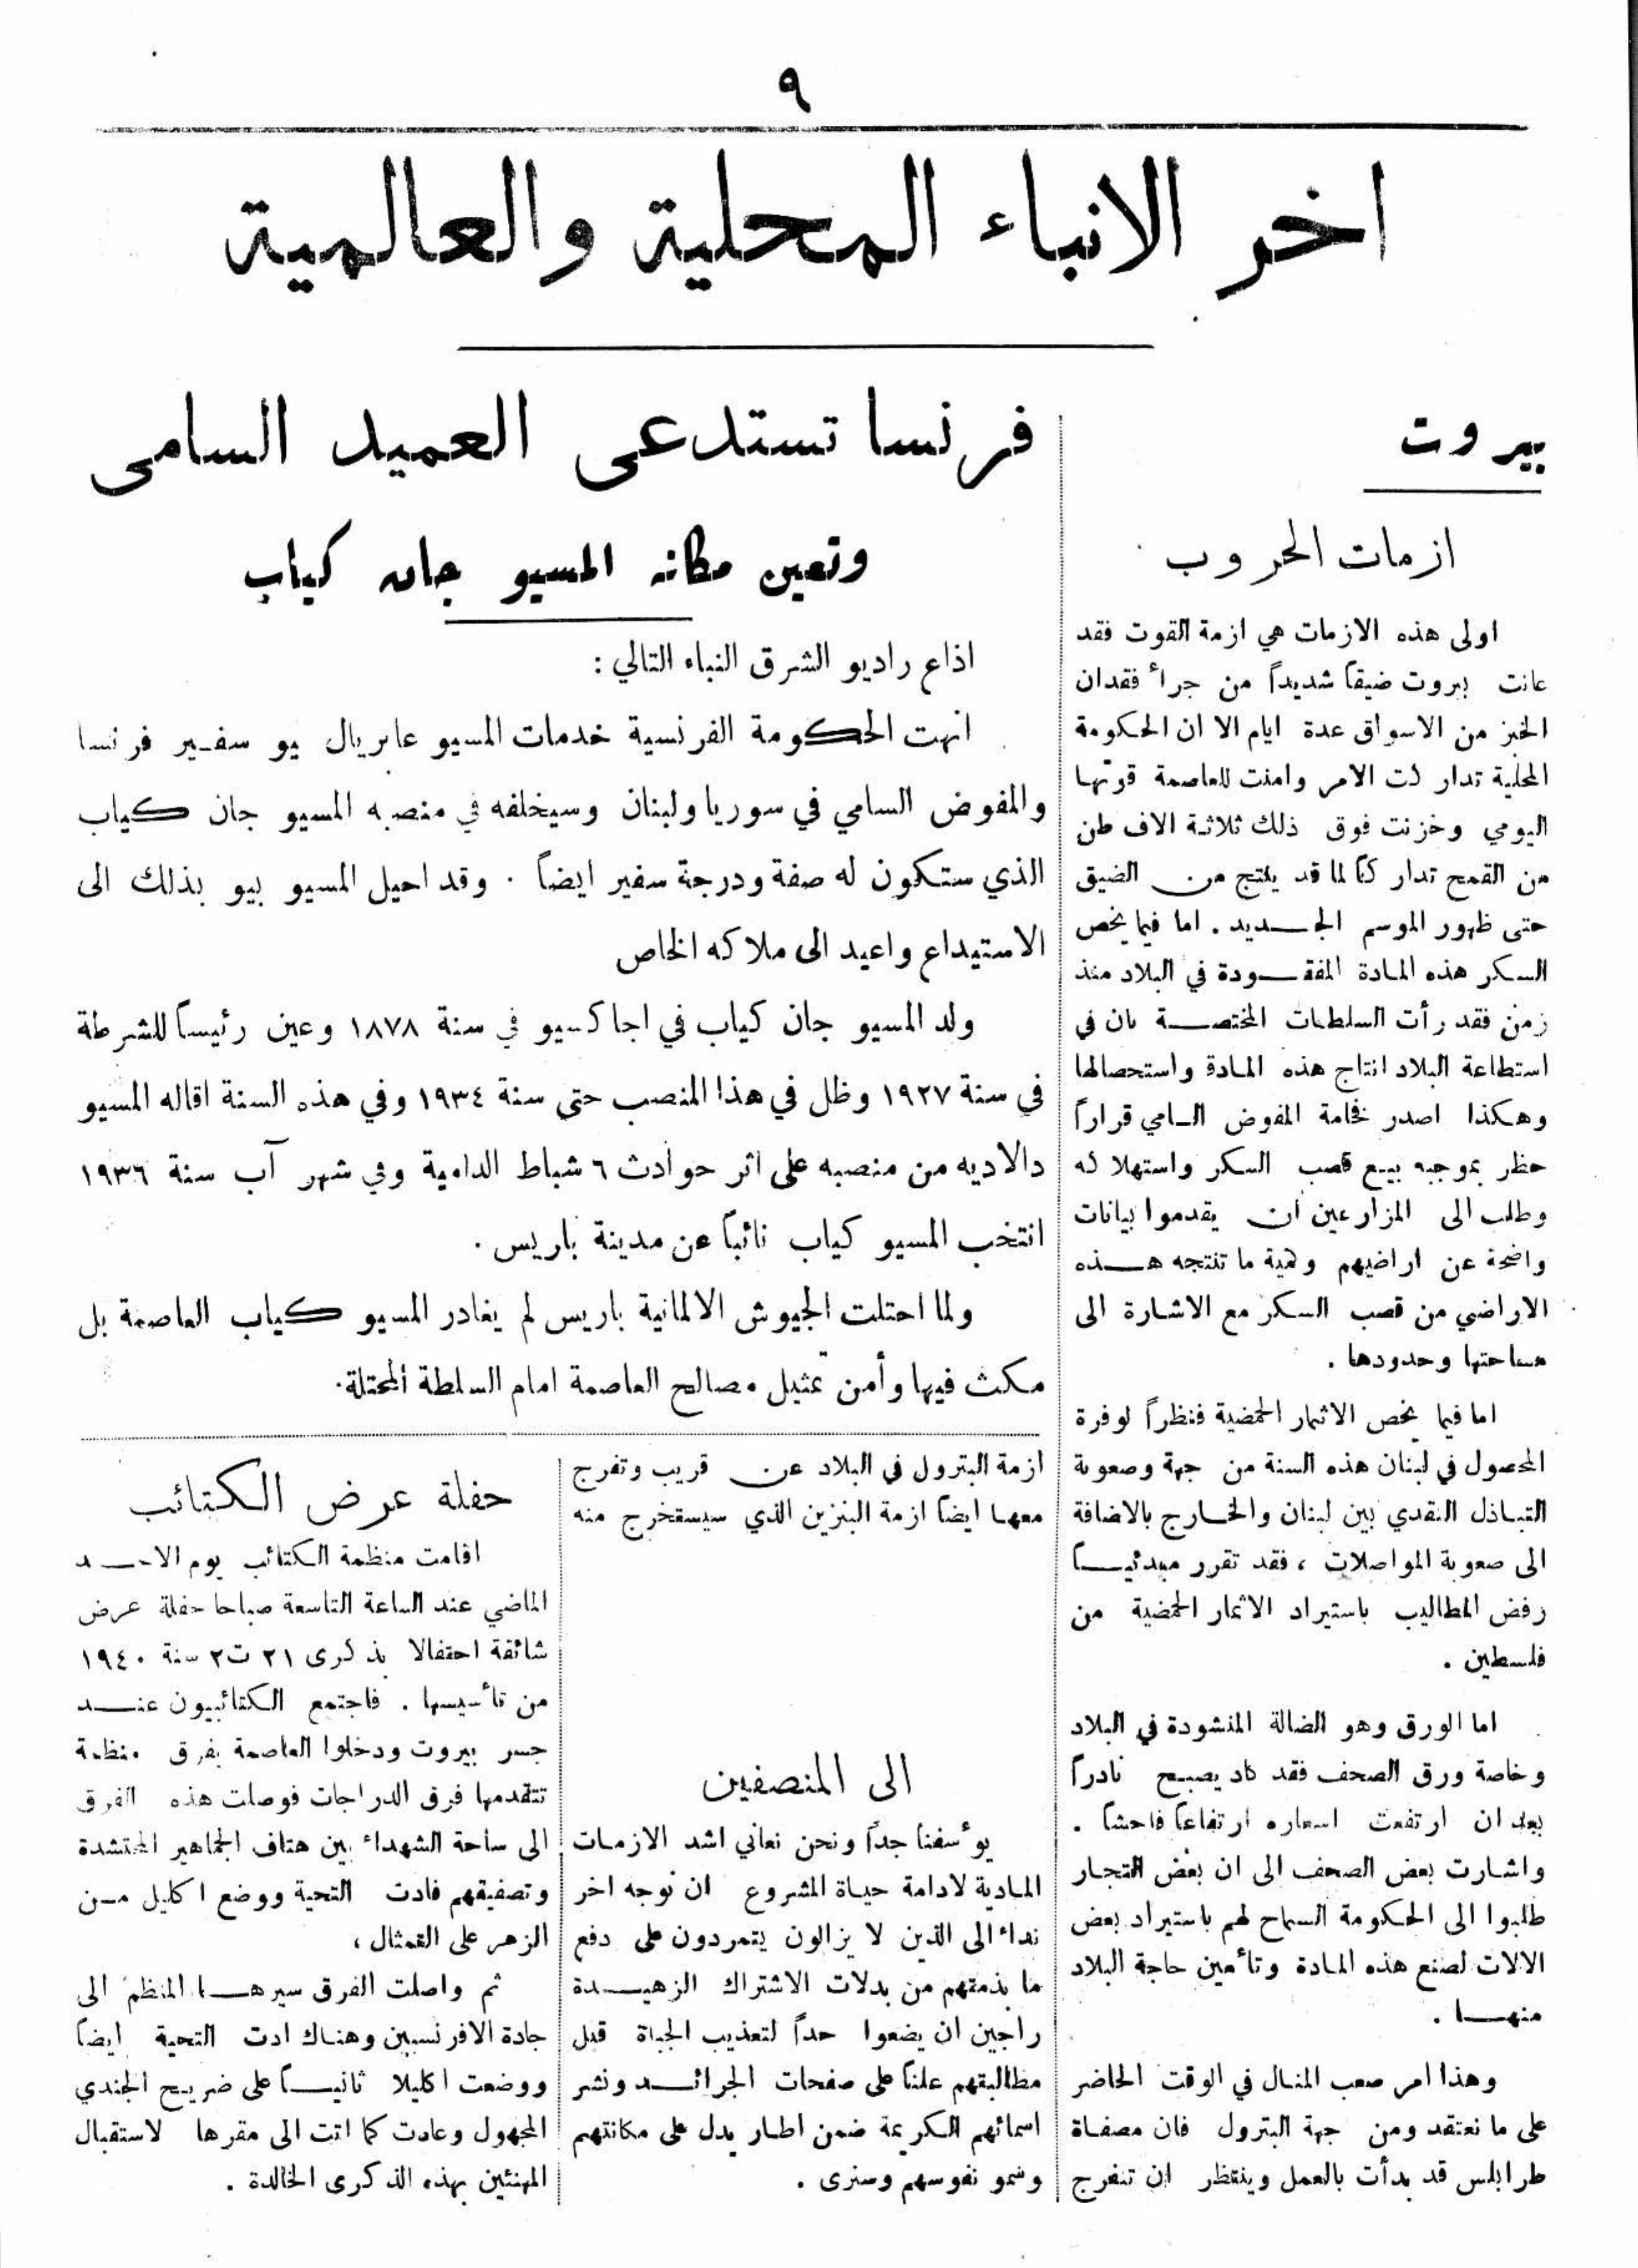 ٩
اخر الانباء المحلية والعالمية
بيروت
ازمات الحروب
اولى هذه الازمات هي ازمة القوت فقد
عانت بيروت ضيقاً شديداً من جرأ فقدان
الخبز من الاسواق عدة ايام الا ان الحكومة
المحلية تداركت الامر وامنت للعاصمة قوتها
اليومي وخزنت فوق ذلك ثلاثة الاف طن
من القمح تداركاً لما قد ينتج من الضيق
حتى ظهور الموسم الجديد . اما فيما يخص
السكر هذه المادة المفقودة في البلاد منذ
زمن فقد رأت السلطات المختصة بان في
استطاعة البلاد انتاج هذه المادة واستحصالها
وهكذا اصدر فخامة المفوض السامي قراراً
حظر بموجبه بيع قصب السكر واستهلاكه
وطلب الى المزارعين ان يقدموا بيانات
واضحة عن اراضيهم وكمية ما تنتجه هذه
الاراضي من قصب السكر مع الاشارة الى
مساحتها وحدودها .
اما فيما يخص الاثمار الحمضية فنظراً لوفرة
المحصول في لبنان هذه السنة من جهة وصعوبة
التبادل النقدي بين لبنان والخارج بالاضافة
الى صعوبة المواصلات ، فقد تقرر مبدئياً
رفض المطاليب باستيراد الاثمار الحمضية من
فلسطين .
اما الورق وهو الضالة المنشودة في البلاد
وخاصة ورق الصحف فقد كاد يصبح نادراً
بعد ان ارتفعت اسعاره ارتفاعاً فاحشاً .
واشارت بعض الصحف الى ان بعض التجار
طلبوا الى الحكومة السماح لهم باستيراد بعض
الالات لصنع هذه المادة وتأمين حاجة البلاد
منها .
وهذا امر صعب المنال في الوقت الحاضر
على ما نعتقد ومن جهة البترول فان مصفاة
طرابلس قد بدأت بالعمل وينتظر ان تنفرج
فرنسا تستدعى العميد السامى
وتعين مكانه المسيو جان كياب
اذاع راديو الشرق النباء التالي :
انهت الحكومة الفرنسية خدمات المسيو غابريال بيو سفير فرنسا
والمفوض السامي في سوريا ولبنان وسيخلفه في منصبه المسيو جان كياب
الذي ستكون له صفة ودرجة سفير ايضاً . وقد احيل المسيو بيو بذلك الى
الاستيداع واعيد الى ملاكه الخاص
ولد المسيو جان كياب في اجاكسيو في سنة ١٨٧٨ وعين رئيساً للشرطة
في سنة ١٩٢٧ وظل في هذا المنصب حتى سنة ١٩٣٤ وفي هذه السنة اقاله المسيو
دالاديه من منصبه على اثر حوادث ٦ شباط الدامية وفي شهر آب سنة ١٩٣٦
انتخب المسيو كياب نائباً عن مدينة باريس .
ولما احتلت الجيوش الالمانية باريس لم يغادر المسيو كياب العاصمة بل
مكث فيها وأمن تمثيل مصالح العاصمة امام السلطة المحتلة .
ازمة البترول في البلاد عن قريب وتفرج
معها ايضاً ازمة البنزين الذي سيستخرج منه
الى المنصفين
يوٴسفنا جداً ونحن نعاني اشد الازمات
المادية لادامة حياة المشروع ان نوجه اخر
نداء الى الذين لا يزالون يتمردون على دفع
ما بذمتهم من بدلات الاشتراك الزهيدة
راجين ان يضعوا حداً لتعذيب الجباة قبل
مطالبتهم علناً على صفحات الجرائد ونشر
اسمائهم الكريمة ضمن اطار يدل على مكانتهم
وسمو نفوسهم وسنرى .
حفلة عرض الكتائب
اقامت منظمة الكتائب يوم الاحد
الماضي عند الساعة التاسعة صباحا حفلة عرض
شائقة احتفالا بذكرى ٢١ ت٢ سنة ١٩٤٠
من تأسيسها . فاجتمع الكتائبيون عند
جسر بيروت ودخلوا العاصمة بفرق منظمة
تتقدمها فرق الدراجات فوصلت هذه الفرق
الى ساحة الشهداء بين هتاف الجماهير المحتشدة
وتصفيقهم فادت التحية ووضع اكليل من
الزهر على التمثال ،
ثم واصلت الفرق سيرها المنظم الى
جادة الافرنسيين وهناك ادت التحية ايضاً
ووضعت اكليلا ثانياً على ضريح الجندي
المجهول وعادت كما اتت الى مقرها لاستقبال
المهنئين بهذه الذكرى الخالدة .